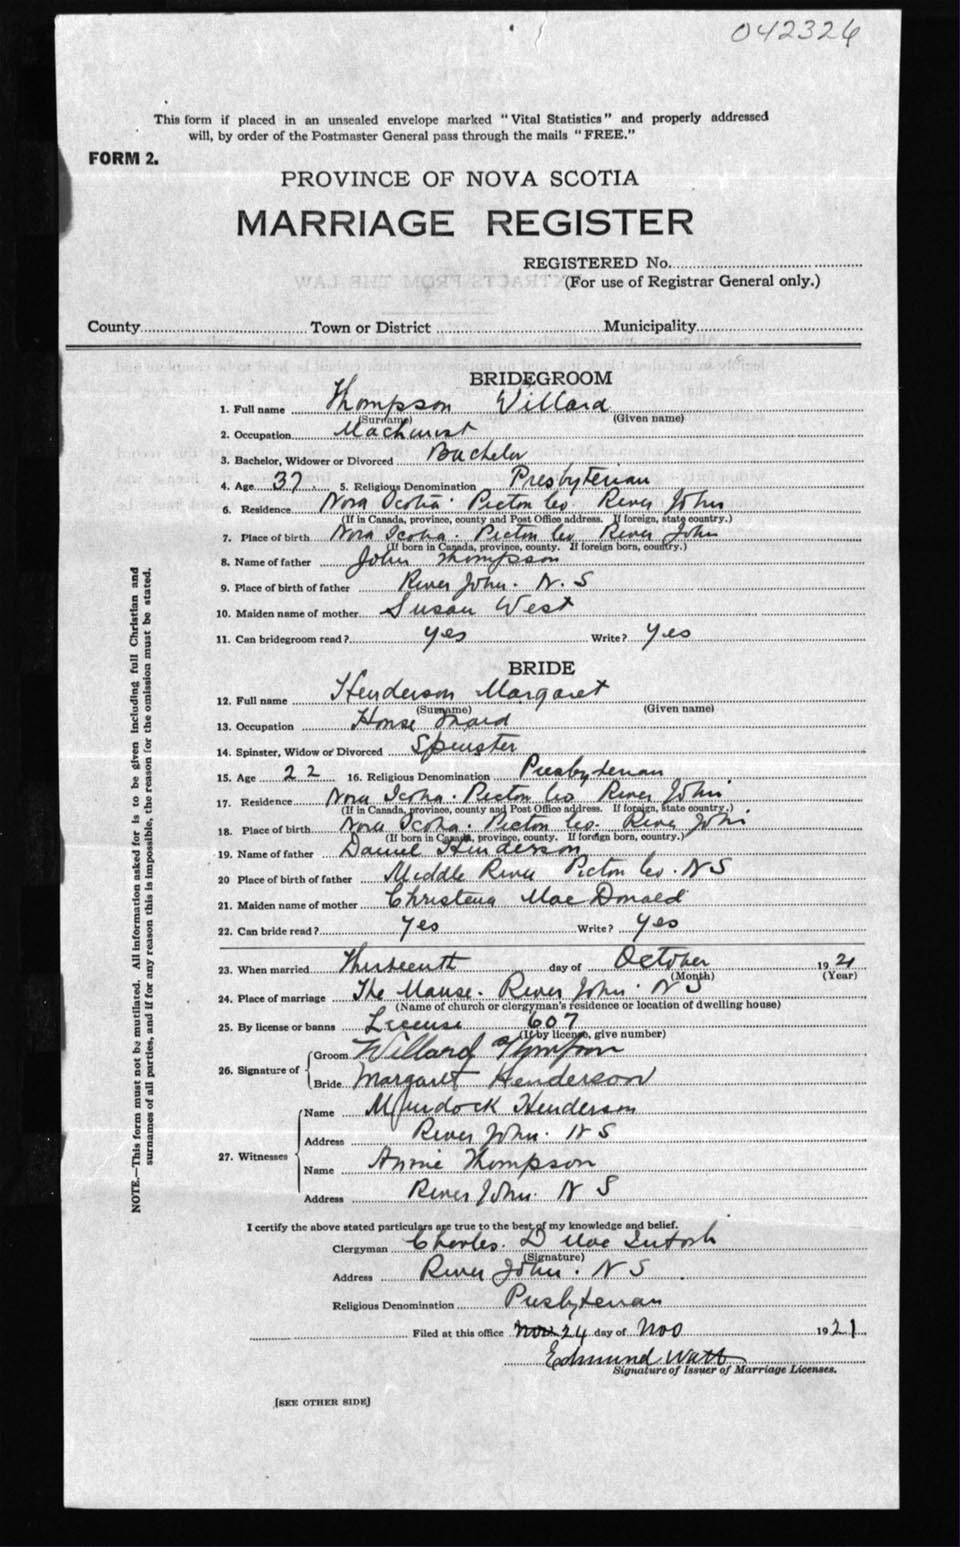 042326
This form if placed in an unsealed envelope marked "Vital Statistics" and properly addressed
will, by order of the Postmaster General pass through the mails "FREE."
FORM 2.
PROVINCE OF NOVA SCOTIA
MARRIAGE REGISTER
REGISTERED No.
(For use of Registrar General only.)
County Town or District Municipality
BRIDEGROOM
1. Full name Thompson Willard
(Surname) (Given name)
2. Occupation Machinist
3. Bachelor, Widower or Divorced Bachelor
4. Age 37 5. Religious Denomination Presbyterian
6. Residence Nova Scotia. Pictou Co River John
(If in Canada, province, county and Post Office address. If foreign, state country.)
7. Place of birth Nova Scotia. Pictou Co River John
(If born in Canada, province, county. If foreign born, country.)
8. Name of father John Thompson
9. Place of birth of father River John. N. S
10. Maiden name of mother Susan West
11. Can bridegroom read? Yes Write? Yes
BRIDE
12. Full name Henderson Margaret
(Surname) (Given name)
13. Occupation House Maid
14. Spinster, Widow or Divorced Spinster
15. Age 22 16. Religious Denomination Presbyterian
17. Residence Nova Scotia. Pictou Co River John
(If in Canada, province, county and Post Office address. If foreign, state country.)
18. Place of birth Nova Scotia. Pictou Co. River John
(If born in Canada, province, county. If foreign born, country.)
19. Name of father Daniel Henderson
20 Place of birth of father Middle River Pictou Co. N S
21. Maiden name of mother Christena MacDonald
22. Can bride read? Yes Write? Yes
23. When married Thirteenth day of October 1921
(Month) (Year)
24. Place of marriage The Manse. River John. N S
(Name of church or clergyman's residence or location of dwelling house)
25. By license or banns License 607
(If by license, give number)
26. Signature of Groom Willard Thompson
Bride Margaret Henderson
27. Witnesses Name Murdock Henderson
Address River John. N S
Name Annie Thompson
Address River John. N S
I certify the above stated particulars are true to the best of my knowledge and belief.
Clergyman Charles. D MacIntosh
(Signature)
Address River John. N S
Religious Denomination Presbyterian
Filed at this office Nov 24 day of Nov 1921
Edmund Watt
Signature of Issuer of Marriage Licenses.
[SEE OTHER SIDE]
NOTE.—This form must not be mutilated. All information asked for is to be given including full Christian and
surnames of all parties, and if for any reason this is impossible, the reason for the omission must be stated.